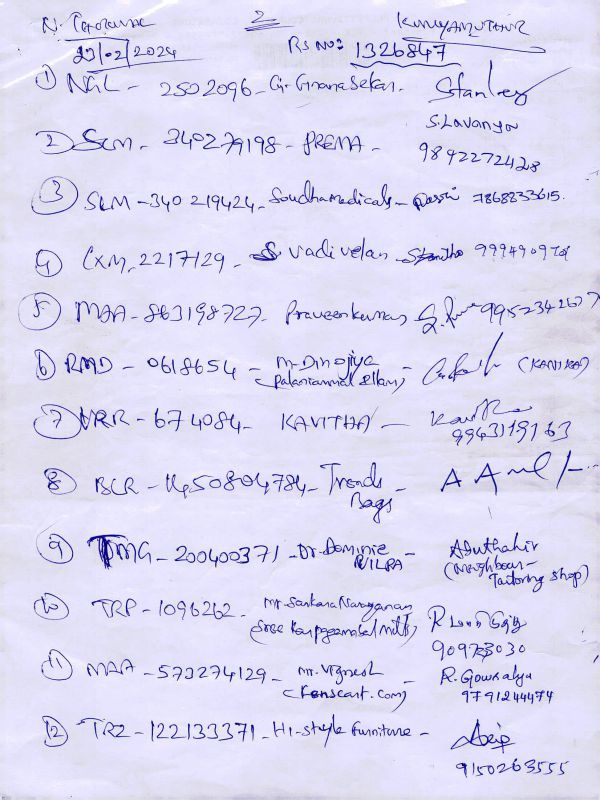 2 KUNIYAMUTHUR
23/02/2024 RS NO: 1326847
1 NGL - 2502096 - G. Gnanasekar. Stanley
2 SLM - 340279198 - PREMA - S. Lavanya
9842272428
3 SLM - 340219424 - Soudhamedicals - 7868833615.
4 CXM. 2217129 - S. vadivelan -
5 MAA - 863198727 - Praveenkumar 9952342677
6 RMD - 0618654 - M. Dinojiya - (KANIKA)
(Palaniammal illam)
7 VRR - 674084 - KAVITHA - Kavitha
9943119163
8 BLR - 1450804784 - Trends
Bags -
9 TMG - 200400371 - Dr. Dominic Abuthahir
(Neighbour -
Tailoring shop)
10 TRP - 1096262 - Mr Sankara Narayanan
(Sree Karpagambal mills) -
90973030
11 MAA - 573274129 - Mr. Vignesh - R. Gowsalya
(fenscart.com) 9791244474
12 TRZ - 122133371 - HI-style Furniture -
9150263555